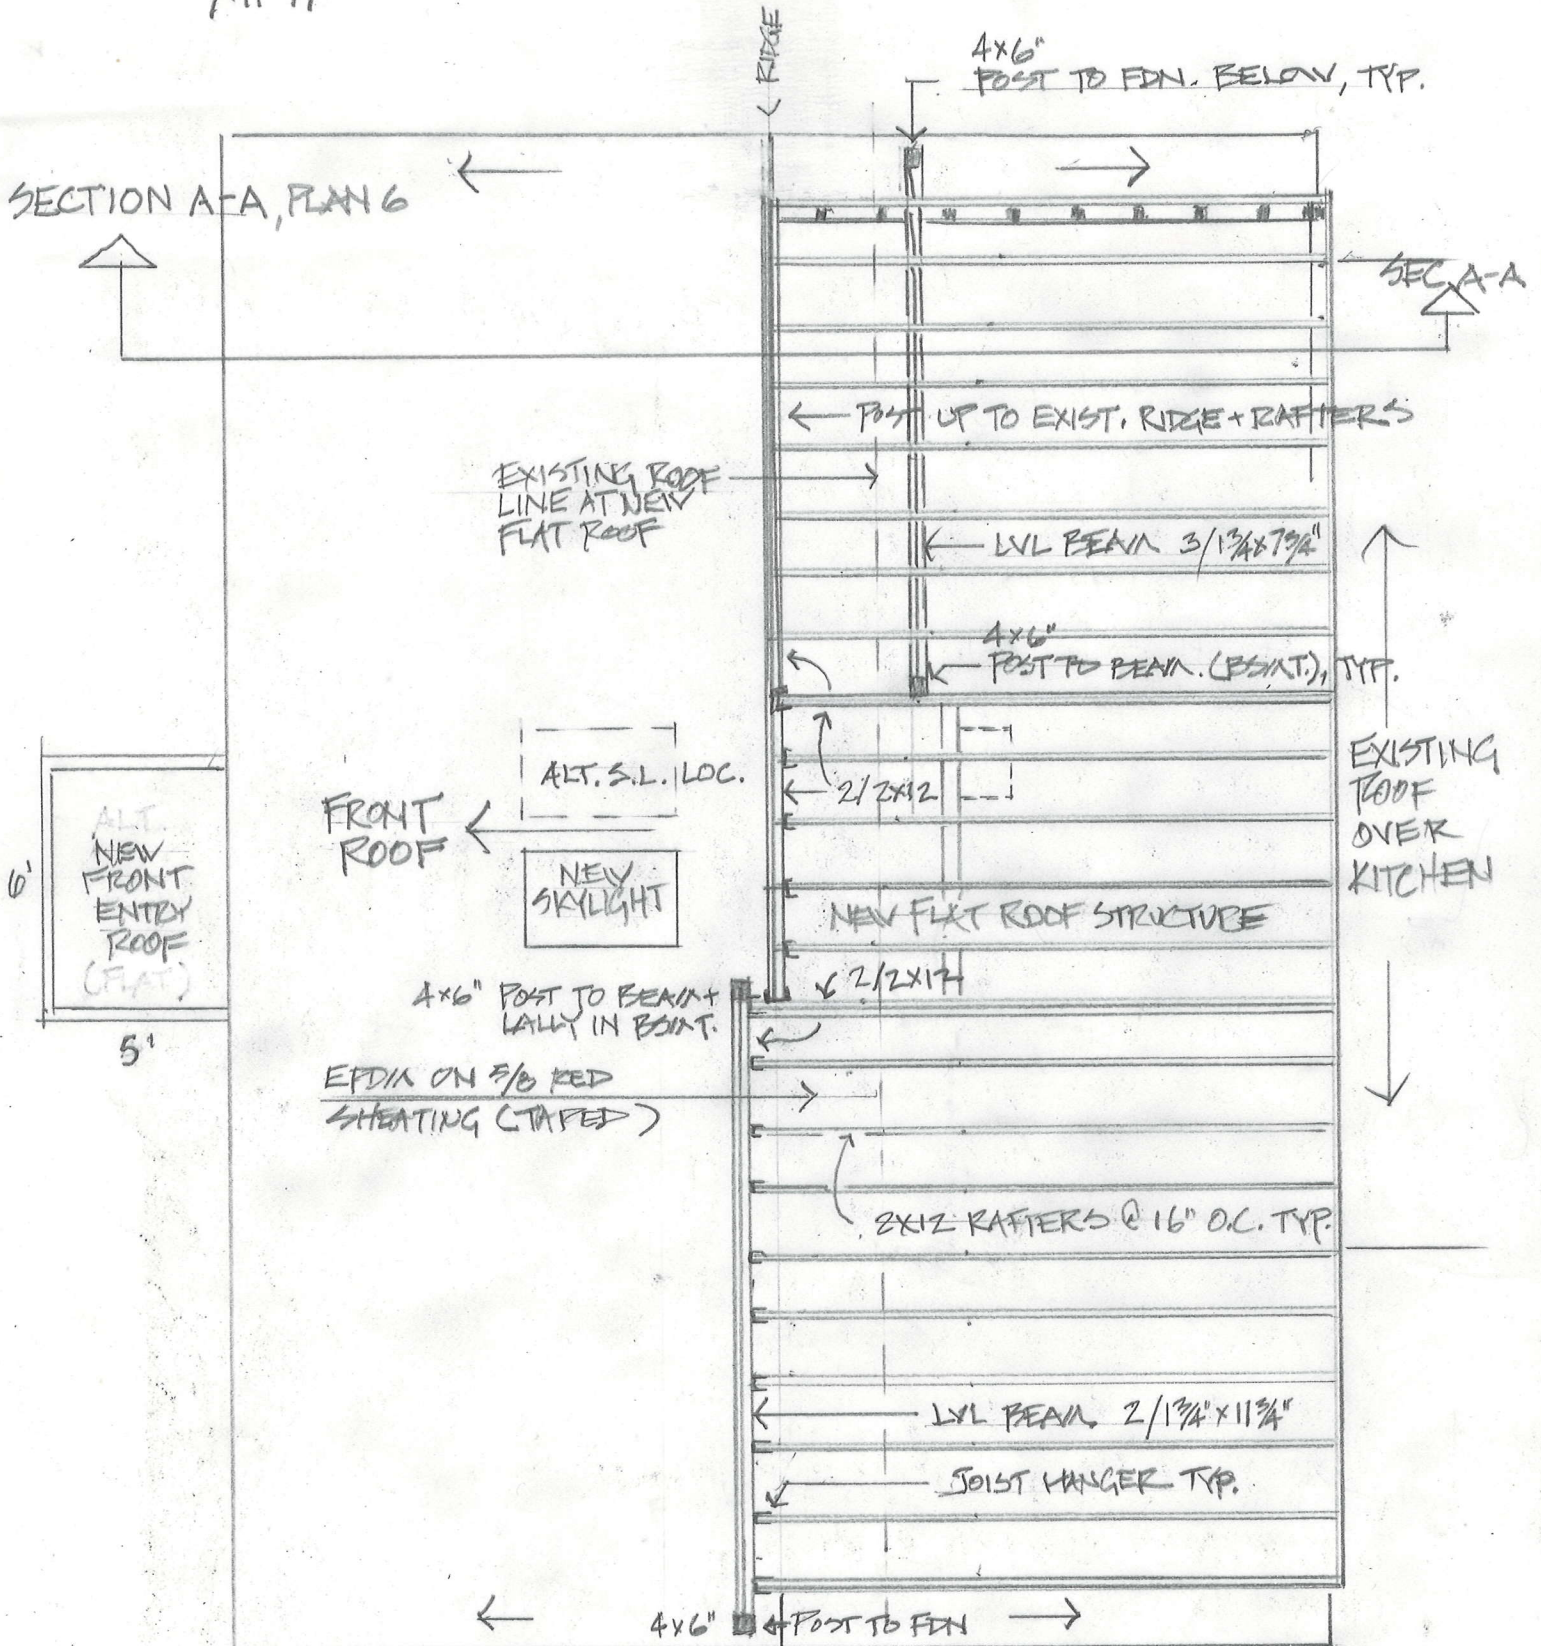 RIDGE
4x6"
POST TO FDN. BELOW, TYP.
SECTION A-A, PLAN 6
SEC. A-A
POST UP TO EXIST. RIDGE + RAFTERS
EXISTING ROOF
LINE AT NEW
FLAT ROOF
LVL BEAM 3/1¾x7¾"
4x6"
POST TO BEAM. (BSMT.), TYP.
ALT. S.L. LOC.
2/2x12
EXISTING
ROOF
OVER
KITCHEN
FRONT
ROOF
ALT.
NEW
FRONT
ENTRY
ROOF
(FLAT)
6'
5'
NEW
SKYLIGHT
NEW FLAT ROOF STRUCTURE
2/2x12
4x6" POST TO BEAM +
LALLY IN BSMT.
EPDM ON 5/8 RED
SHEATING (TAPED)
2X12 RAFTERS @ 16" O.C. TYP.
LVL BEAM. 2/1¾"x11¾"
JOIST HANGER TYP.
4x6" POST TO FDN